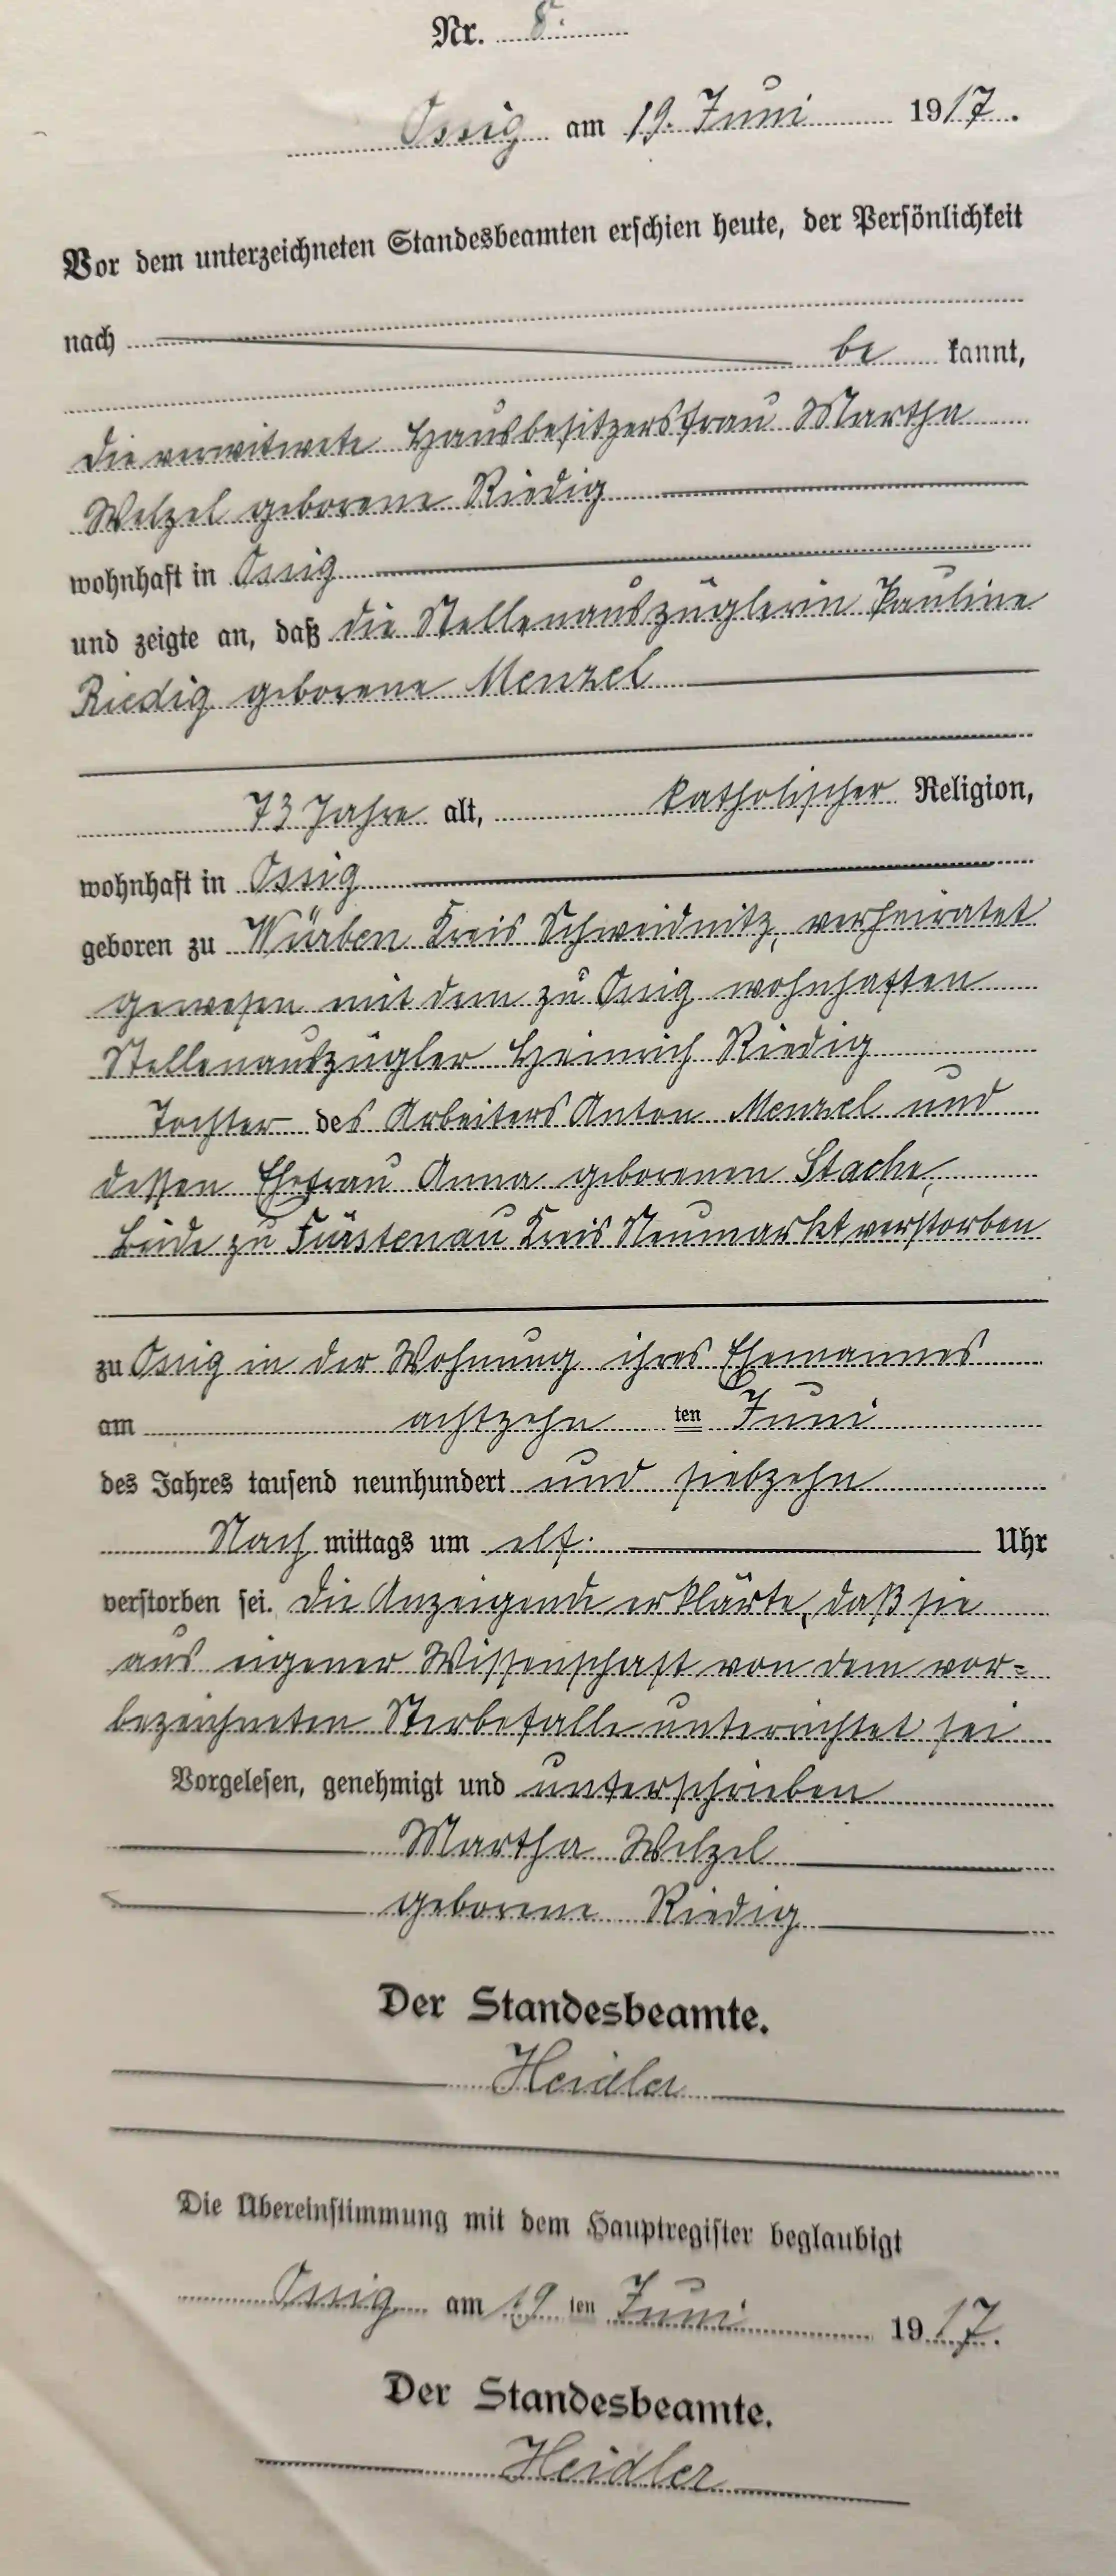 Nr. 8.
Ossig am 19. Juni 1917.
Vor dem unterzeichneten Standesbeamten erschien heute, der Persönlichkeit
nach
be kannt,
die verwitwete Hausbesitzersfrau Martha
Welzel geborene Riedig
wohnhaft in Ossig
und zeigte an, daß die Stellenauszüglerin Pauline
Riedig geborene Menzel
73 Jahre alt, katholischer Religion,
wohnhaft in Ossig
geboren zu Würben Kreis Schweidnitz, verheiratet
gewesen mit dem zu Ossig wohnhaften
Stellenauszügler Heinrich Riedig
Tochter des Arbeiters Anton Menzel und
dessen Ehefrau Anna geborenen Stache,
beide zu Fürstenau Kreis Neumarkt verstorben
zu Ossig in der Wohnung ihres Ehemannes
am achtzehn ten Juni
des Jahres tausend neunhundert und siebzehn
Nach mittags um elf Uhr
verstorben sei. Die Anzeigende erklärte, daß sie
aus eigener Wissenschaft von dem vor=
bezeichneten Sterbefalle unterrichtet sei
Vorgelesen, genehmigt und unterschrieben
Martha Welzel
geborene Riedig
Der Standesbeamte.
Heidler
Die Übereinstimmung mit dem Hauptregister beglaubigt
Ossig am 19 ten Juni 1917.
Der Standesbeamte.
Heidler